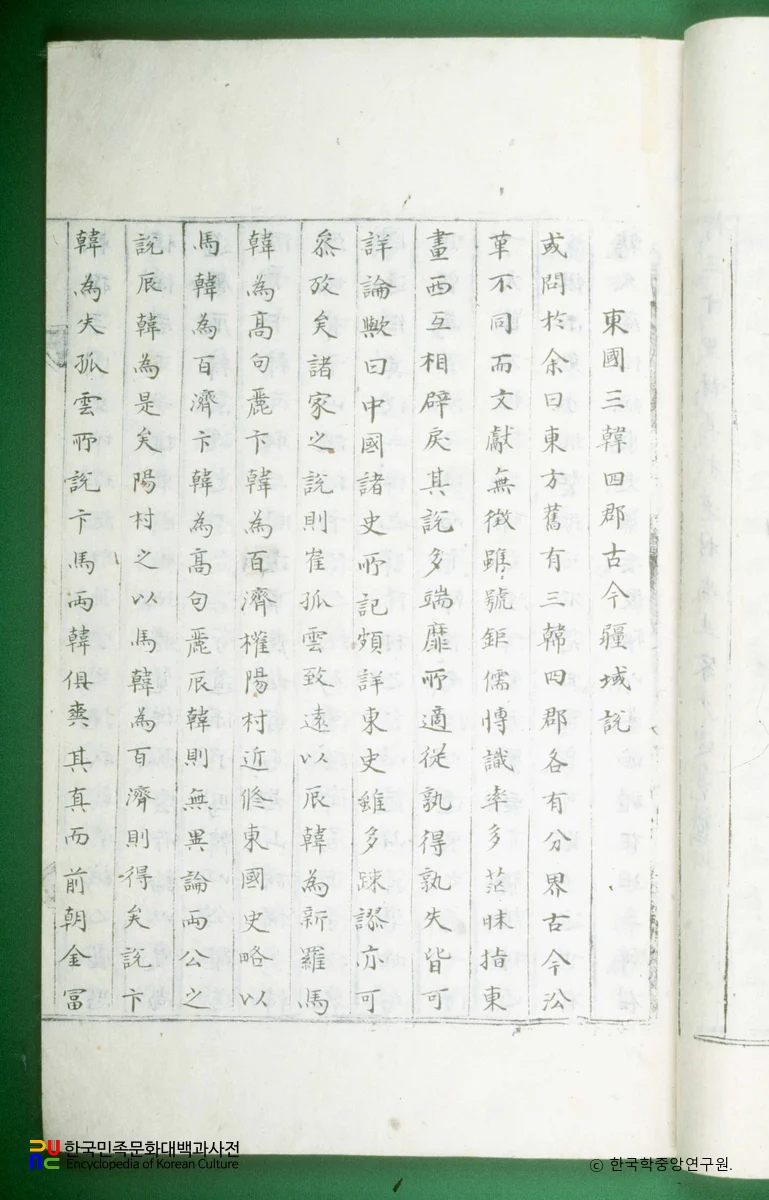 東國三韓四郡古今疆域說
或問於余曰東方舊有三韓四郡各有分界古今沿
革不同而文獻無徵雖號鉅儒博識率多茫昧指東
畫西互相辟戾其說多端靡所適從孰得孰失皆可
詳論歟曰中國諸史所記頗詳東史雖多踈謬亦可
叅攷矣諸家之說則崔孤雲致遠以辰韓為新羅馬
韓為高句麗卞韓為百濟權陽村近修東國史略以
馬韓為百濟卞韓為高句麗辰韓則無異論兩公之
說辰韓為是矣陽村之以馬韓為百濟則得矣說卞
韓為失孤雲所說卞馬兩韓俱爽其真而前朝金冨
한국민족문화대백과사전
Encyclopedia of Korean Culture
© 한국학중앙연구원.